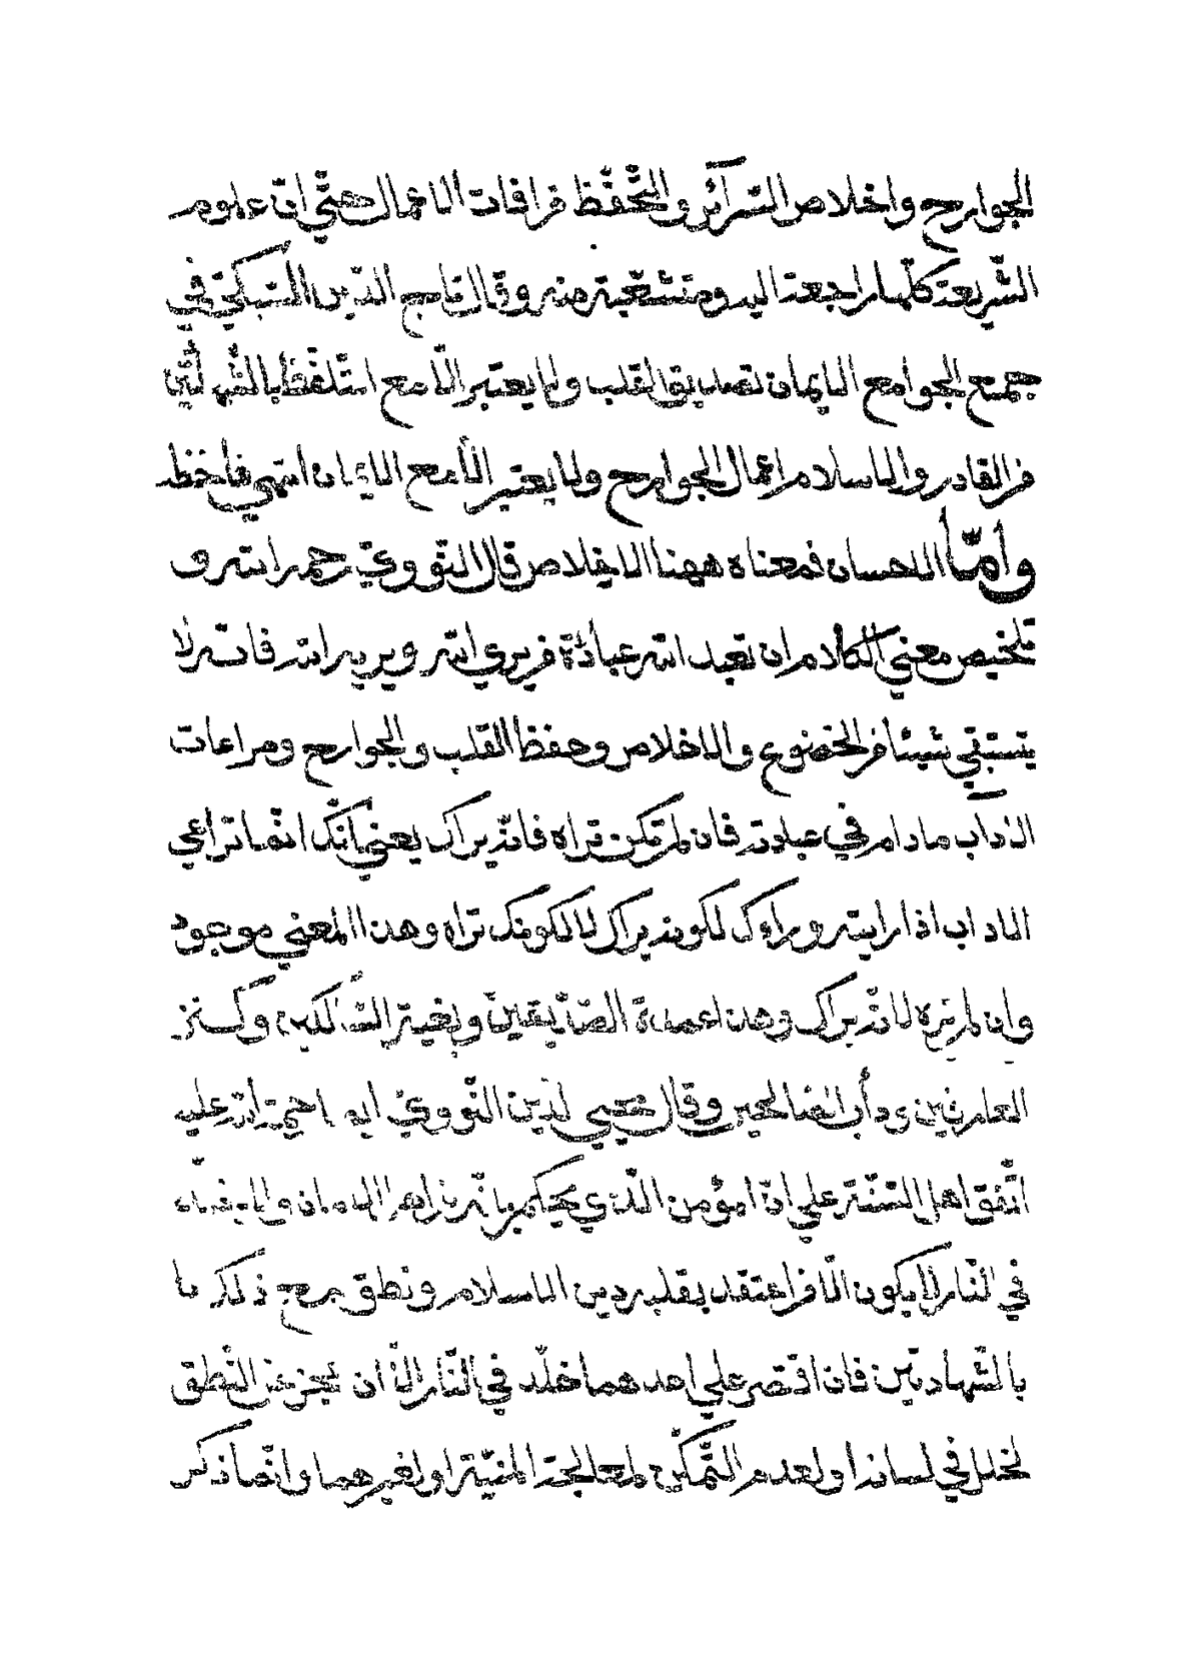 الجوارح واخلاص السّرآئر والتّحفّظ من افات الاعمال حتّي انّ علوم
الشّريعة كلّها راجعة اليه ومتشعّبة منه وقال تاج الدّين السّبكيّ في
جمع الجوامع الايمان تصديق القلب ولا يعتبر الّا مع التّلفّظ بالشّهادتين
من القادر والاسلام اعمال الجوارح ولا يعتبر الّا مع الايمان انتهي فاحفظه
وأمّا الاحسان فمعناه ههنا الاخلاص قال النّوويّ رحمه الله و
تلخيص معني الكلام ان تعبد الله عبادة من يري الله ويريه الله فانّه لا
يستبقي شيئا من الخضوع والاخلاص وحفظ القلب والجوارح ومراعات
الآداب مادام في عبادته فان لم تكن تراه فانّه يراك يعني انّك انّما تراعي
الاداب اذا رايته وراءك لكونه يراك لا لكونك تراه وهذا المعني موجود
وان لم تره لانّه يراك وهذا عمدة الصّدّيقين وبغية السّالكين وكنز
العارفين ودأب الصّالحين وقال محيي الدّين النّوويّ ايضا رحمة الله عليه
اتّفق اهل السّنّة علي انّ المؤمن الّذي يحكم بانّه من اهل الايمان ولا يخلد
في النّار لا يكون الّا من اعتقد بقلبه دين الاسلام ونطق مع ذلك
بالشّهادتين فان اقتصر علي احدهما خلّد في النّار الّا ان يعجز عن النّطق
لخلل في لسانه او لعدم التّمكّن لمعالجة المنيّة او لغيرهما وانّما ذكر